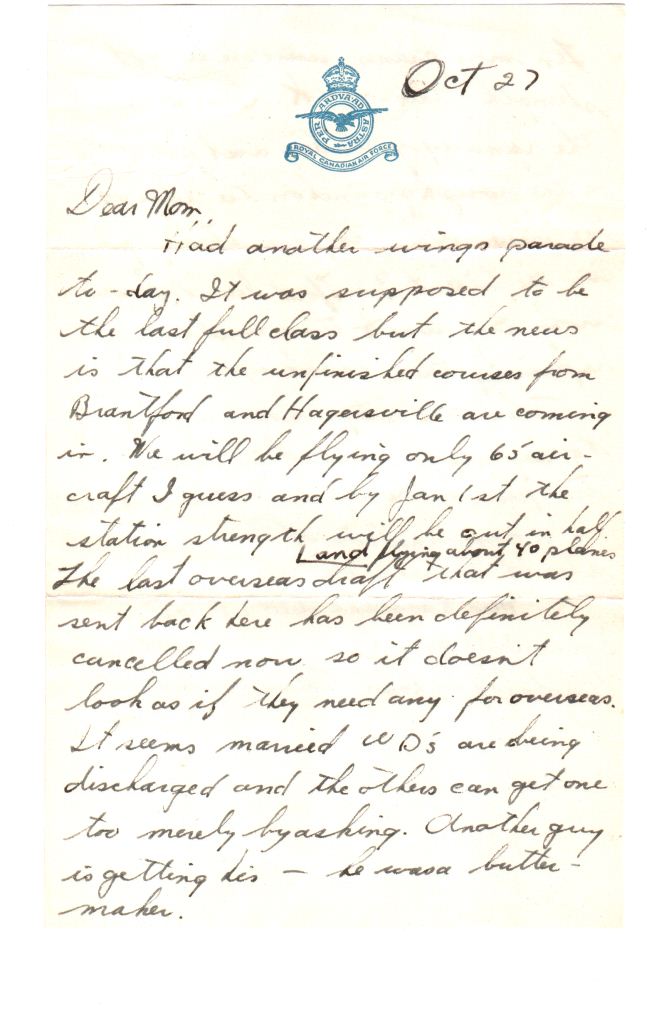 Oct 27
PER ARDVA AD ASTRA
ROYAL CANADIAN AIR FORCE
Dear Mom,
Had another wings parade
to-day. It was supposed to be
the last full class but the news
is that the unfinished courses from
Brantford and Hagersville are coming
in. We will be flying only 65 air-
craft I guess and by Jan 1st the
station strength will be cut in half
and flying about 40 planes
The last overseas draft that was
sent back here has been definitely
cancelled now so it doesn't
look as if they need any for overseas.
It seems married WD's are being
discharged and the others can get one
too merely by asking. Another guy
is getting his — he was a butter-
maker.